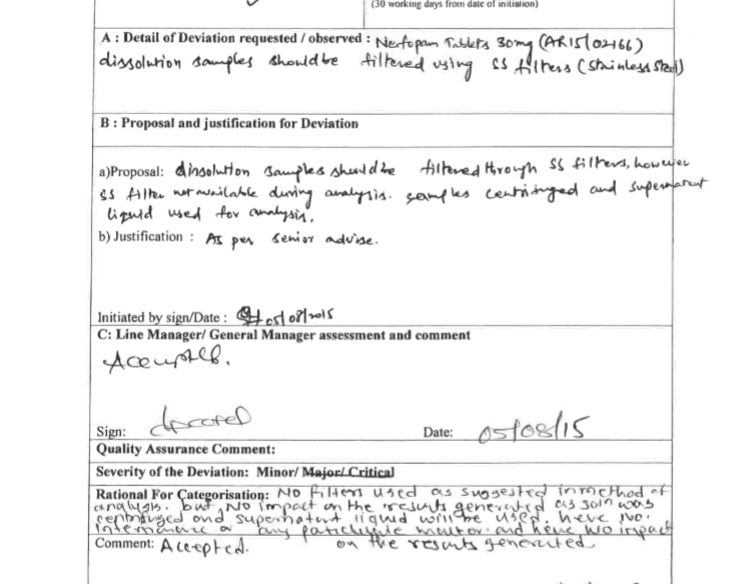 (30 working days from date of initiation)
A : Detail of Deviation requested / observed : Nefopam Tablets 30mg (AR15/02166)
dissolution samples should be filtered using SS filters (stainless steel)
B : Proposal and justification for Deviation
a)Proposal: dissolution samples should be filtered through SS filters, however
SS filter not available during analysis. samples centrifuged and supernatant
liquid used for analysis.
b) Justification : As per senior advise.
Initiated by sign/Date : 05/08/2015
C: Line Manager/ General Manager assessment and comment
Accepted.
Sign: Date: 05/08/15
Quality Assurance Comment:
Severity of the Deviation: Minor/ Major/ Critical
Rational For Categorisation: No filters used as suggested in method of
analysis. but, No impact on the results generated as soln was
centrifuged and supernatant liquid will be used. hence No.
interference of any particulate matter. and hence No impact
Comment: Accepted. on the results generated